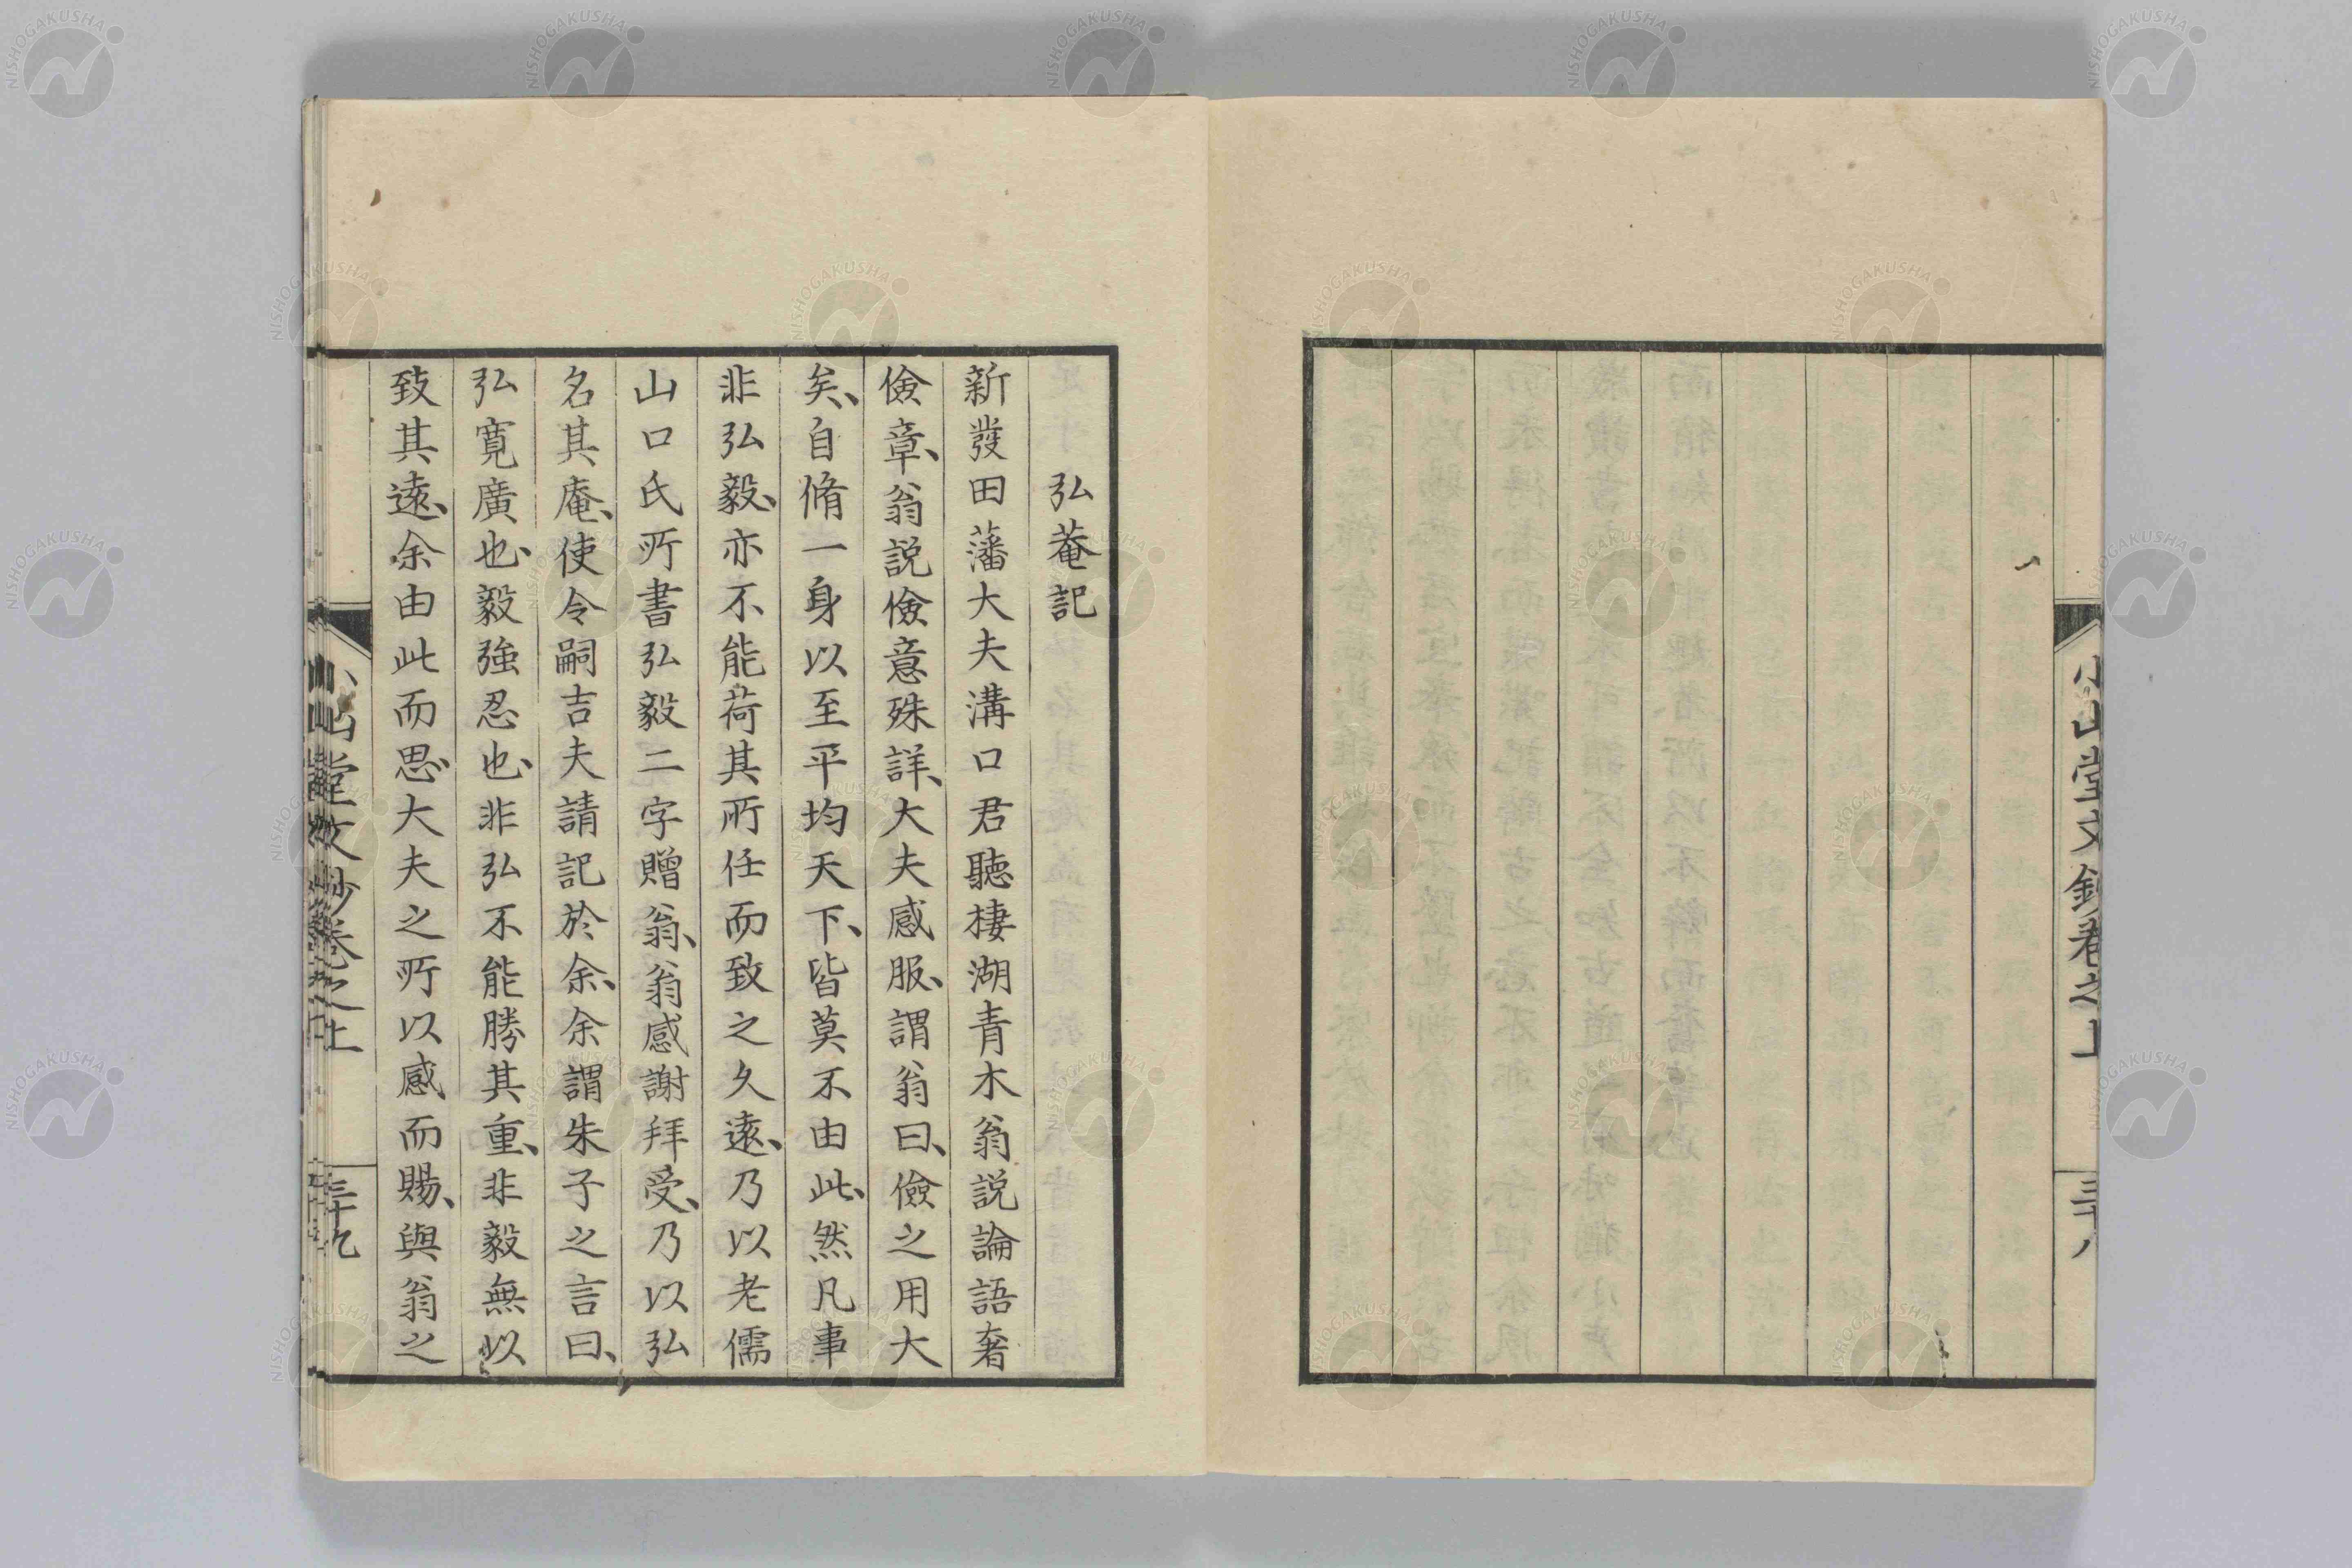 小山堂文鈔卷之上
三十八
弘菴記
新發田藩大夫溝口君聽棲湖青木翁説論語奢
儉章、翁説儉意殊詳、大夫感服、謂翁曰、儉之用大
矣、自脩一身以至平均天下、皆莫不由此、然凡事
非弘毅、亦不能荷其所任而致之久遠、乃以老儒
山口氏所書弘毅二字贈翁、翁感謝拜受、乃以弘
名其庵、使令嗣吉夫請記於余、余謂朱子之言曰、
弘寬廣也、毅強忍也、非弘不能勝其重、非毅無以
致其遠、余由此而思、大夫之所以感而賜、與翁之
小山堂文鈔卷之上
三十九
NISHOGAKUSHA